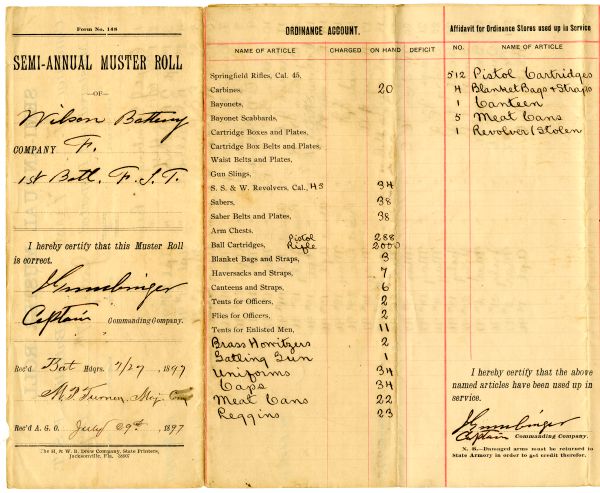 Form No. 148
SEMI-ANNUAL MUSTER ROLL
—OF—
Wilson Battery
COMPANY F.
1st Batl. F. S. T.
I hereby certify that this Muster Roll
is correct.
Captain Commanding Company.
Rec'd Bat Hdqrs. 7/27 1897
M. P. Turner, Maj.
Rec'd A. G. O. July 29th 1897
The H. & W. B. Drew Company, State Printers,
Jacksonville, Fla.
ORDINANCE ACCOUNT.
NAME OF ARTICLE CHARGED ON HAND DEFICIT
Springfield Rifles, Cal. 45,
Carbines, 20
Bayonets,
Bayonet Scabbards,
Cartridge Boxes and Plates,
Cartridge Box Belts and Plates,
Waist Belts and Plates,
Gun Slings,
S. S. & W. Revolvers, Cal., 45 34
Sabers, 38
Saber Belts and Plates, 38
Arm Chests,
Ball Cartridges, Pistol 288
Rifle 2000
Blanket Bags and Straps, 3
Haversacks and Straps, 7
Canteens and Straps, 6
Tents for Officers, 2
Flies for Officers, 2
Tents for Enlisted Men, 11
Brass Howitzers 2
Gatling Gun 1
Uniforms 34
Caps 34
Meat Cans 22
Leggins 23
Affidavit for Ordinance Stores used up in Service
NO. NAME OF ARTICLE
512 Pistol Cartridges
4 Blanket Bags & Straps
1 Canteen
5 Meat Cans
1 Revolver/Stolen
I hereby certify that the above
named articles have been used up in
service.
Captain Commanding Company.
N. B.—Damaged arms must be returned to
State Armory in order to get credit therefor.